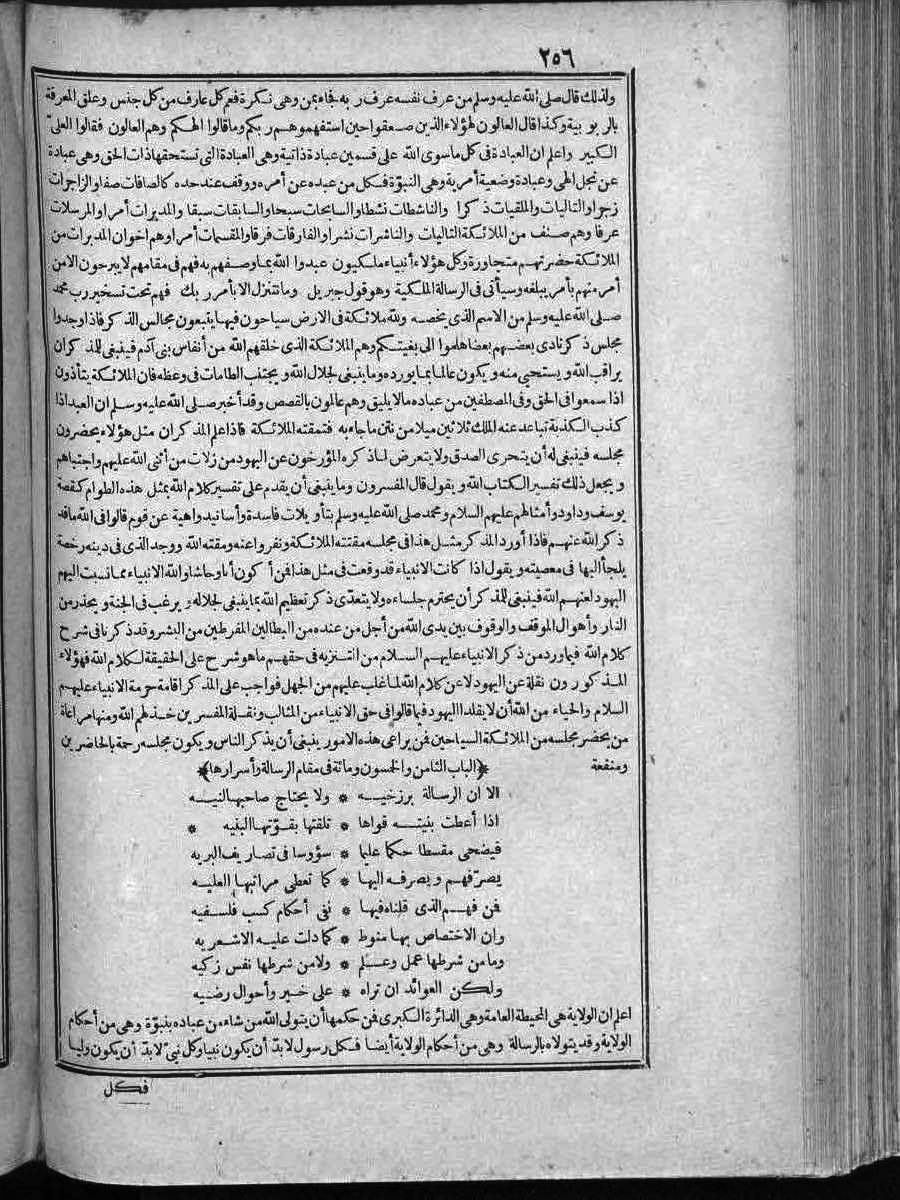 ٢٥٦
ولذلك قال صلى الله عليه وسلم من عرف نفسه عرف ربه فجاء بمن وهى نكرة فعم كل عارف من كل جنس وعلق المعرفة
بالربوبية وكذا قال العالون لهؤلاء الذين صعقوا حين استفهموهم ربكم وما قالوا الهكم وهم العالون فقالوا العلىّ
الكبير واعلم ان العبادة فى كل ما سوى الله على قسمين عبادة ذاتية وهى العبادة التى تستحقها ذات الحق وهى عبادة
عن تجل الهى وعبادة وضعية أمرية وهى النبوّة فكل من عبده عن أمره ووقف عند حده كالصافات صفا والزاجرات
زجرا والتاليات والملقيات ذكرا والناشطات نشطا والسابحات سبحا والسابقات سبقا والمدبرات أمرا والمرسلات
عرفا وهم صنف من الملائكة التاليات والناشرات نشرا والفارقات فرقا والمقسمات أمرا وهم اخوان المدبرات من
الملائكة حضرتهم متجاورة وكل هؤلاء أنبياء ملكيون عبدوا الله بما وصفهم به فهم فى مقامهم لا يبرحون الا من
أمر منهم بأمر يبلغه وسيأتى فى الرسالة الملكية وهو قول جبريل وما نتنزل الا بأمر ربك فهم تحت تسخير رب محمد
صلى الله عليه وسلم من الاسم الذى يخصه ولله ملائكة فى الارض سياحون فيها يتبعون مجالس الذكر فاذا وجدوا
مجلس ذكر نادى بعضهم بعضا هلموا الى بغيتكم وهم الملائكة الذى خلقهم الله من أنفاس بنى آدم فينبغى للمذكر ان
يراقب الله ويستحيى منه ويكون عالما بما يورده وما ينبغى لجلال الله ويجتنب الطامات فى وعظه فان الملائكة يتأذون
اذا سمعوا فى الحق وفى المصطفين من عباده ما لا يليق وهم عالمون بالقصص وقد أخبر صلى الله عليه وسلم ان العبد اذا
كذب الكذبة تباعد عنه الملك ثلاثين ميلا من نتن ما جاء به فتمقته الملائكة فاذا علم المذكر ان مثل هؤلاء يحضرون
مجلسه فينبغى له أن يتحرى الصدق ولا يتعرض لما ذكره المؤرخون عن اليهود من زلات من أثنى الله عليهم واجتباهم
ويجعل ذلك تفسير الكتاب الله ويقول قال المفسرون وما ينبغى أن يقدم على تفسير كلام الله بمثل هذه الطوام كقصة
يوسف وداود وأمثالهم عليهم السلام ومحمد صلى الله عليه وسلم بتأويلات فاسدة وأسانيد واهية عن قوم قالوا فى الله ما قد
ذكر الله عنهم فاذا أورد المذكر مثل هذا فى مجلسه مقتته الملائكة ونفروا عنه ومقته الله ووجد الذى فى دينه رخصة
يلجأ اليها فى معصيته ويقول اذا كانت الانبياء قد وقعت فى مثل هذا فمن أكون أنا وحاشا والله الانبياء مما نسبت اليهم
اليهود لعنهم الله فينبغى للمذكر أن يحترم جلساءه ولا يتعدّى ذكر تعظيم الله بما ينبغى لجلاله ويرغب فى الجنة ويحذر من
النار وأهوال الموقف والوقوف بين يدى الله من أجل من عنده من البطالين المفرطين من البشر وقد ذكرنا فى شرح
كلام الله فيما ورد من ذكر الانبياء عليهم السلام من التنزيه فى حقهم ما هو شرح على الحقيقة لكلام الله فهؤلاء
المذكورون نقلة عن اليهود لا عن كلام الله لما غلب عليهم من الجهل فواجب على المذكر اقامة حرمة الانبياء عليهم
السلام والحياء من الله أن لا يقلد اليهود فيما قالوا فى حق الانبياء من المثالب ونقلة المفسرين خذلهم الله ومنها مراعاة
من يحضر مجلسه من الملائكة السياحين فمن يراعى هذه الامور ينبغى أن يذكر الناس ويكون مجلسه رحمة بالحاضرين
ومنفعة ﴿الباب الثامن والخمسون ومائة فى مقام الرسالة وأسرارها﴾
الا ان الرسالة برزخيه * ولا يحتاج صاحبها لنيه
اذا أعطت بنيته قواها * تلقتها بقوّتها البنيه *
فيضحى مقسطا حكما عليما * سؤوسا فى تصاريف البريه
يصرّفهم ويصرفه اليها * كما تعطى مراتبها العليه
فمن فهم الذى قلناه فيها * نفى أحكام كسب فلسفيه
وان الاختصاص بها منوط * كما دلت عليه الاشعريه
وما من شرطها عمل وعلم * ولا من شرطها نفس زكيه
ولكن العوائد ان تراه * على خير وأحوال رضيه
اعلم ان الولاية هى المحيطة العامة وهى الدائرة الكبرى فمن حكمها أن يتولى الله من شاء من عباده بنبوّة وهى من أحكام
الولاية وقد يتولاه بالرسالة وهى من أحكام الولاية أيضا فكل رسول لابدّ أن يكون نبيا وكل نبىّ لابدّ أن يكون وليا
فكل